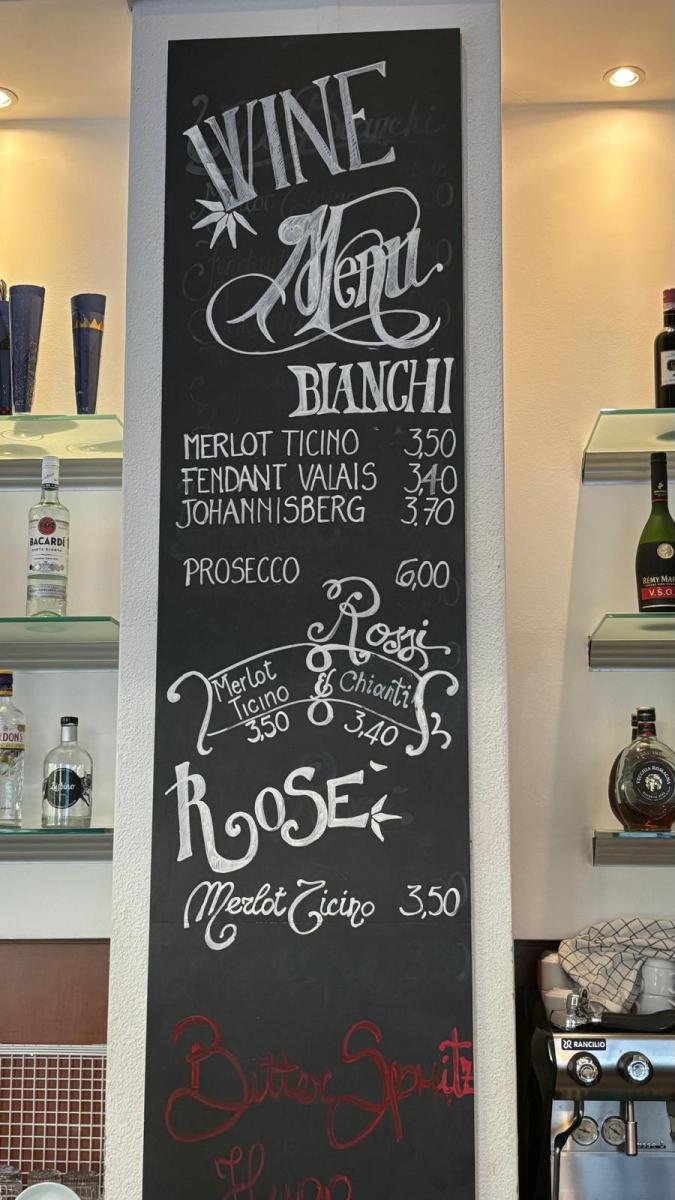 WINE
Menu
BIANCHI
MERLOT TICINO 3,50
FENDANT VALAIS 3,40
JOHANNISBERG 3,70
PROSECCO 6,00
Rossi
Merlot Ticino 3,50 & Chianti 3,40
ROSÈ
Merlot Ticino 3,50
Bitter Spritz
Hugo
BACARDI
RÉMY MAR
V.S.O.
RDON'S
VECCHIA ROMAGNA
RANCILIO